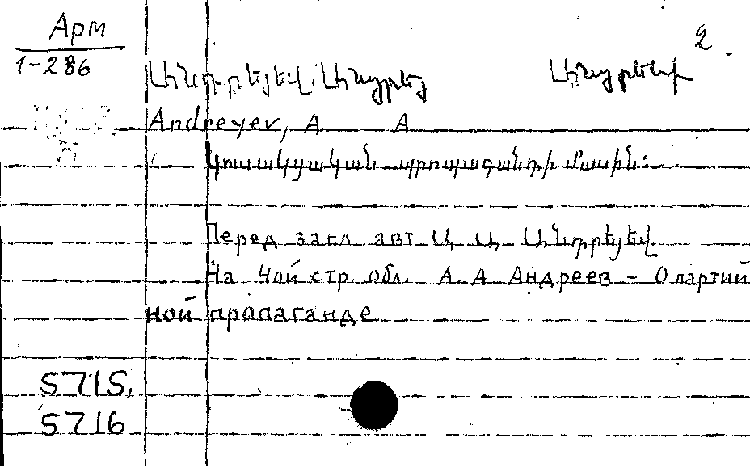 Арм
2
1-286
Անդրեյեվ, Անդրեյ Անդրեևի
Andreyev, A A
Կուսակցական պրոպագանդի մասին:
Перед загл авт Ա. Ա. Անդրեյեվ
На 4ой стр. обл. А. А Андреев - О партий
ной пропаганде
5715,
5716